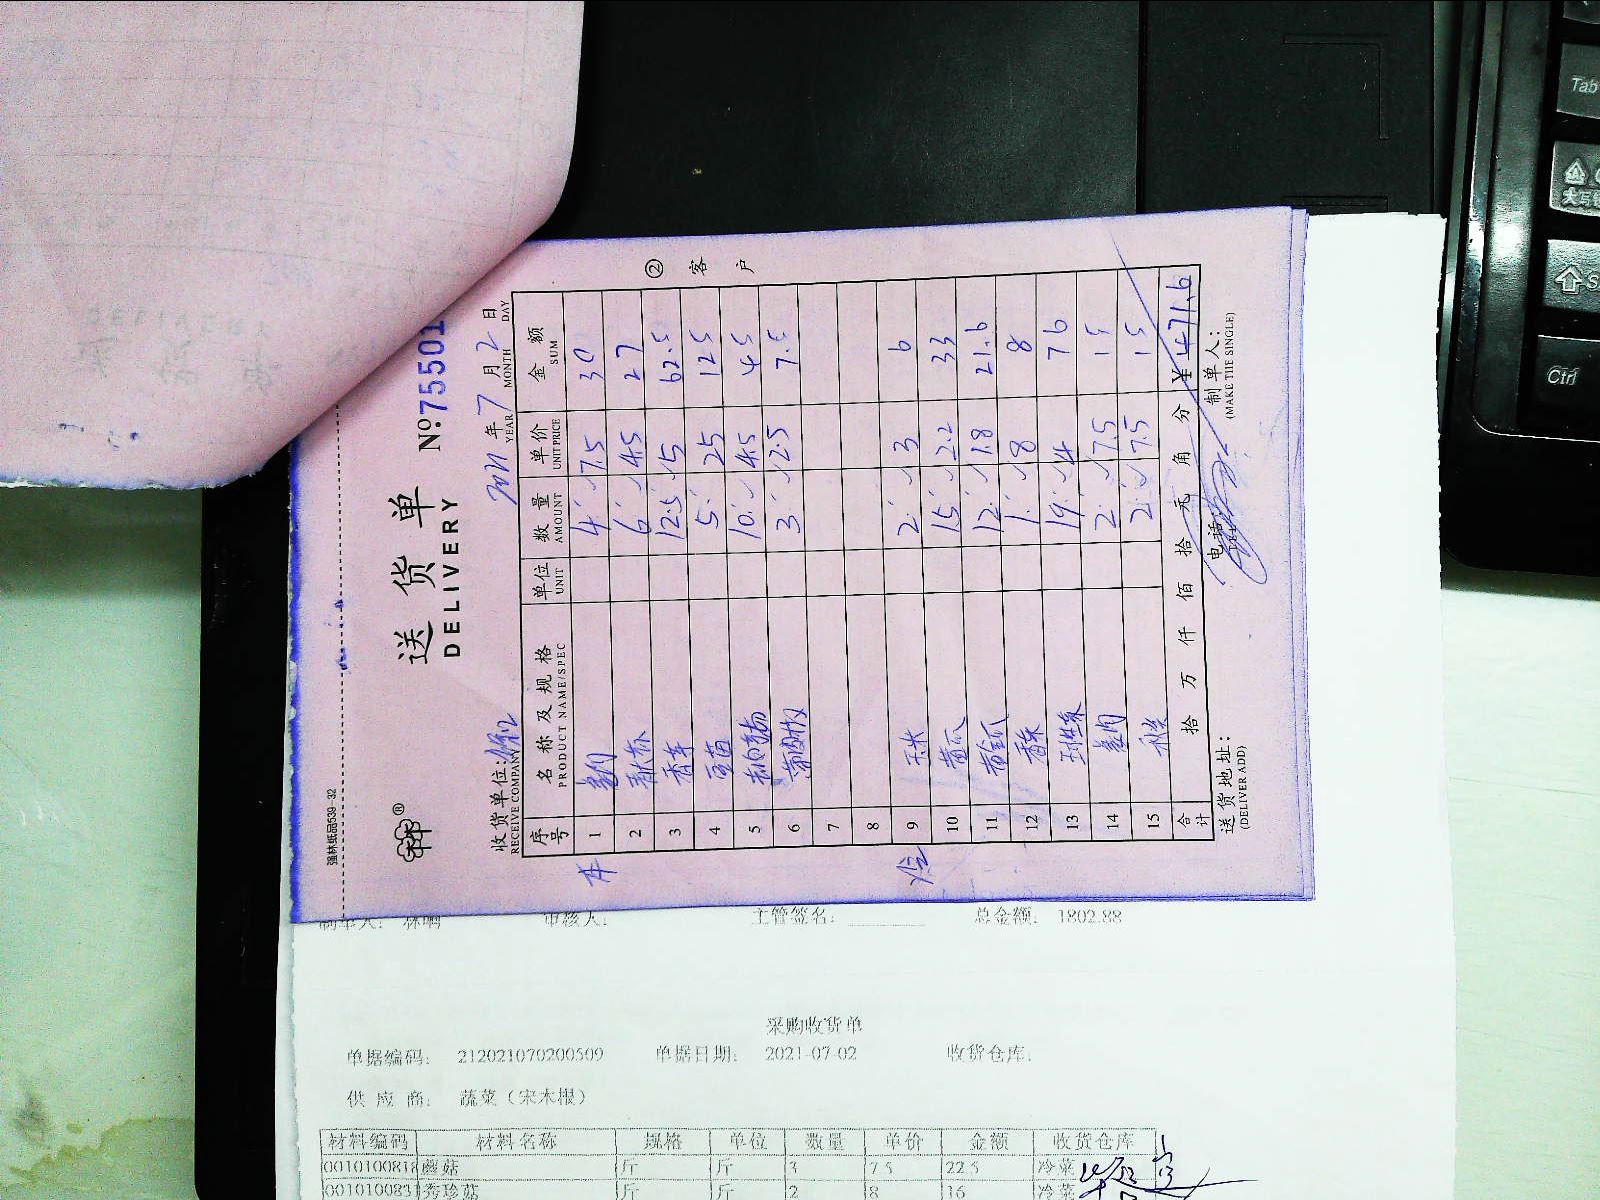 强林纸品539-32
送货单 №75501
DELIVERY
2021 年 7 月 2 日
YEAR MONTH DAY
收货单位:
RECEIVE COMPANY
② 客户
序号 名称及规格 单位 数量 单价 金额
PRODUCT NAME/SPEC UNIT AMOUNT UNIT PRICE SUM
1 姜肉 4 7.5 30
2 6 4.5 27
3 香芹 12.5 5 62.5
4 豆苗 5 25 125
5 10 4.5 45
6 3 2.5 7.5
7
8
9 玉米 2 3 6
10 黄瓜 15 2.2 33
11 黄金瓜 12 1.8 21.6
12 香菜 1 8 8
13 19 4 76
14 姜肉 2 7.5 15
15 2 7.5 15
合计 拾 万 仟 佰 拾 元 角 分 ¥471.6
送货地址: 电话 制单人:
(DELIVER ADD) (MAKE THE SINGLE)
制单人: 林晒 审核人: 主管签名: 总金额: 1802.88
采购收货单
单据编码: 212021070200509 单据日期: 2021-07-02 收货仓库:
供应商: 蔬菜(宋木根)
材料编码 材料名称 规格 单位 数量 单价 金额 收货仓库
0010100818 蘑菇 斤 斤 3 7.5 22.5 冷菜
001010083 秀珍菇 斤 斤 2 8 16 冷菜
Tab
Ctrl